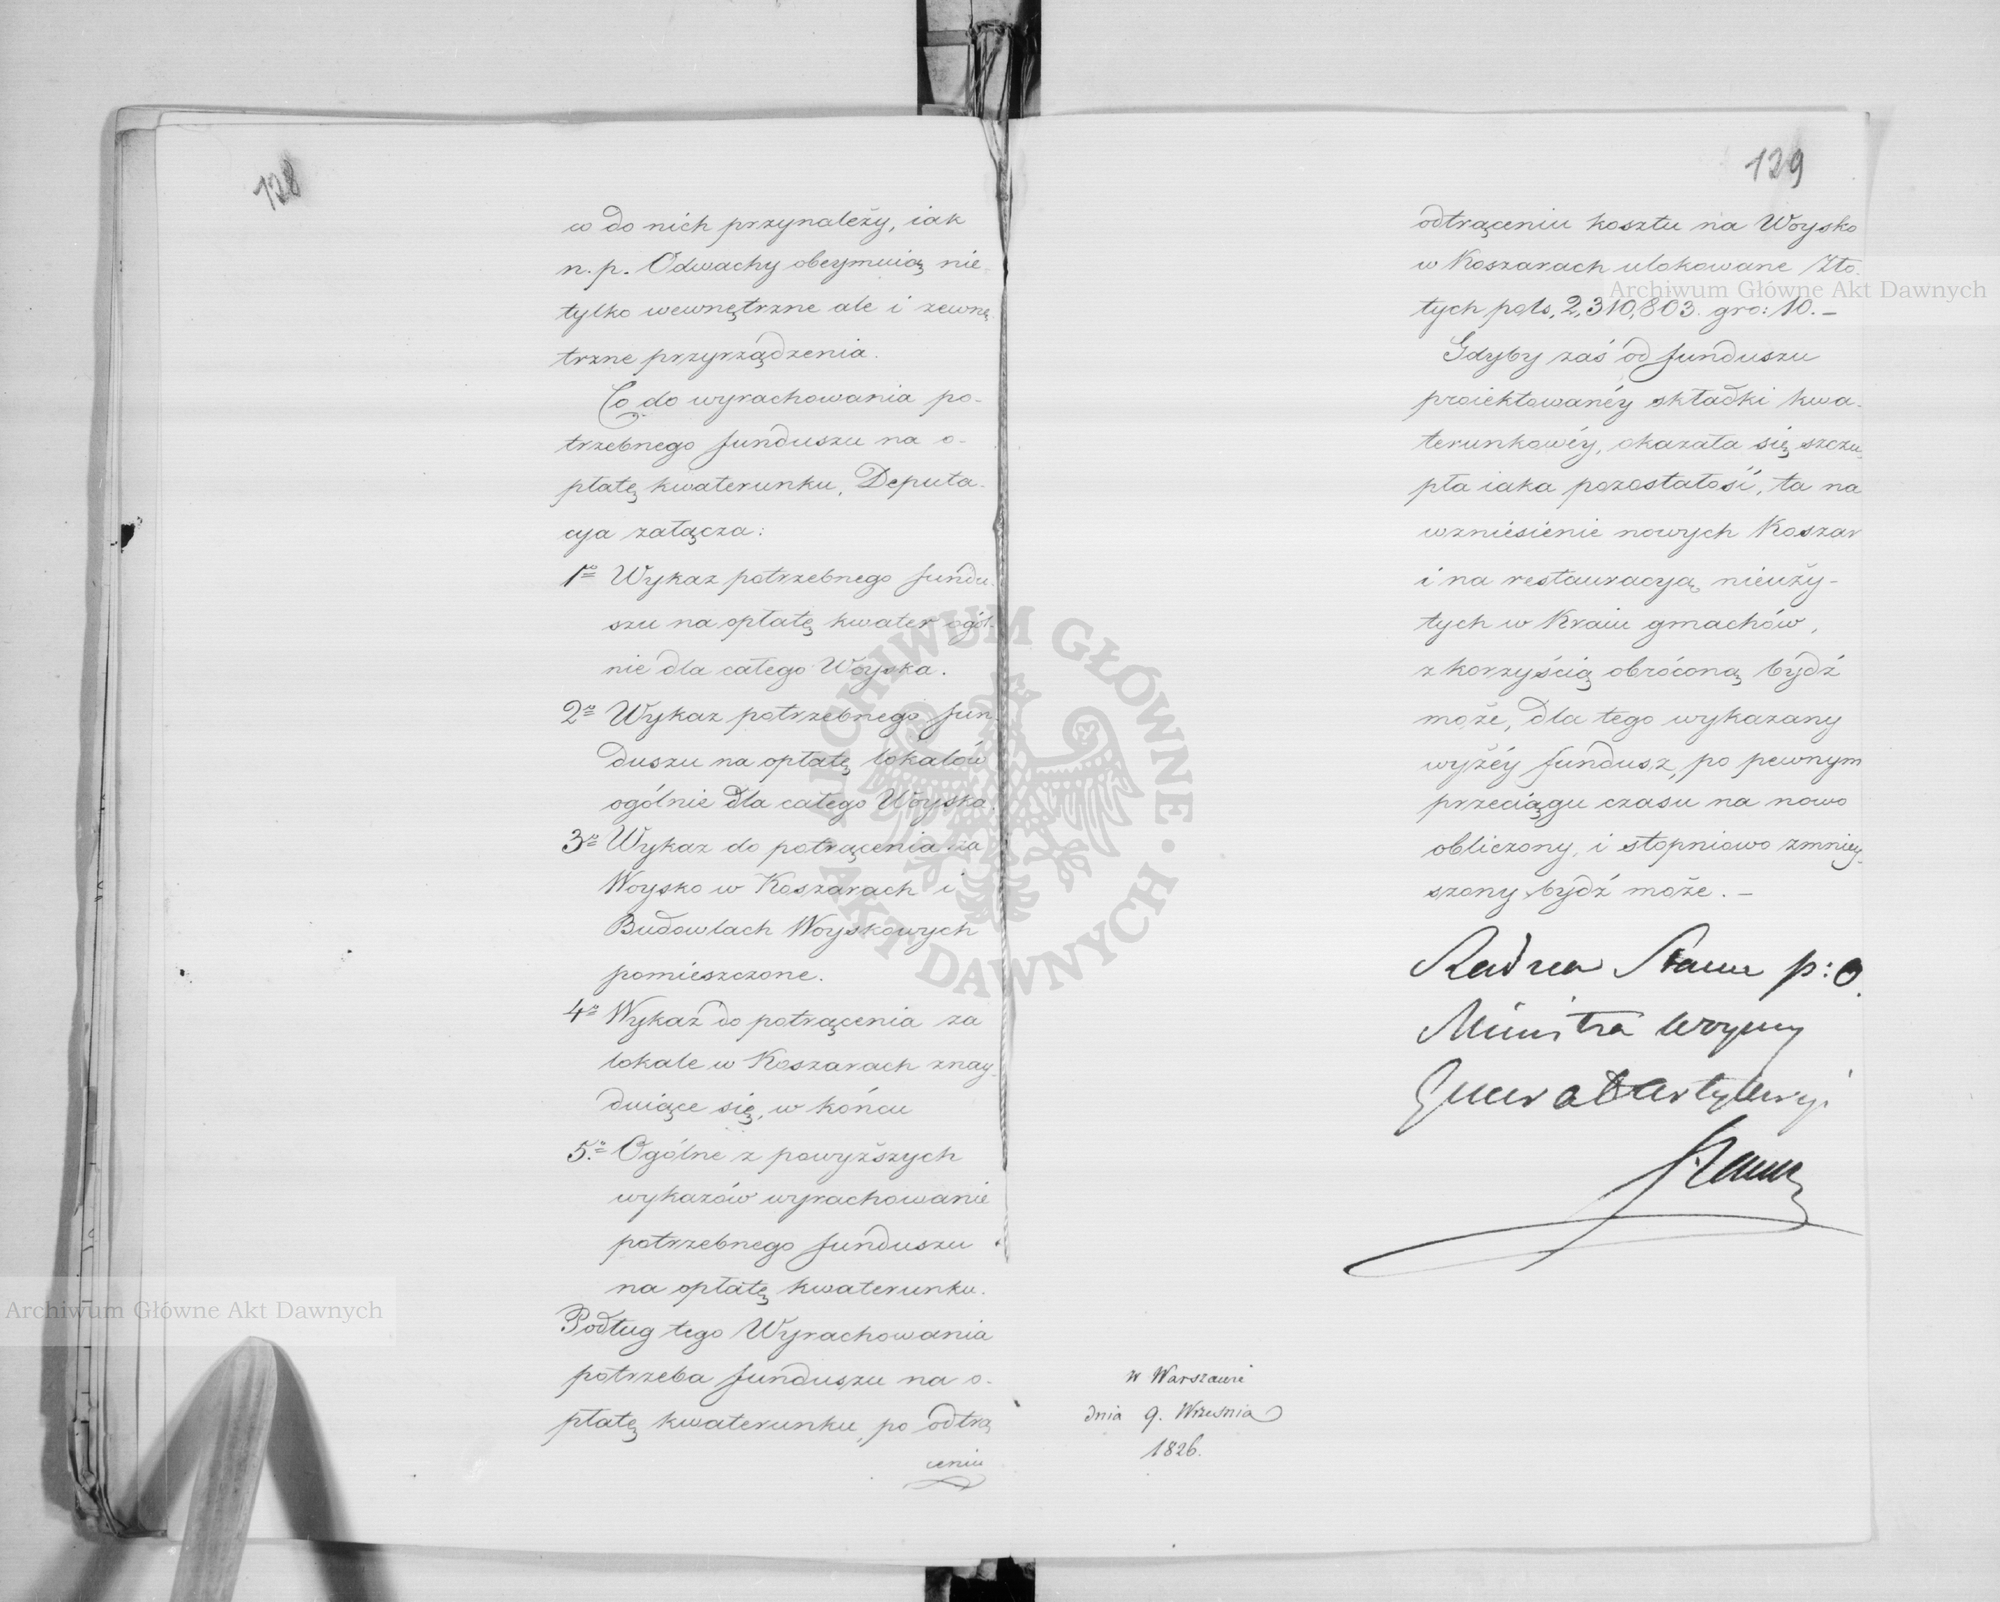 128
co do nich przynależy, iak
n. p. Odwachy obeymuią nie
tylko wewnętrzne ale i zewnę
trzne przyrządzenia.
Co do wyrachowania po-
trzebnego funduszu na o-
płatę kwaterunku, Deputa-
cya załącza:
1o Wykaz potrzebnego fundu-
szu na opłatę kwater ogól-
nie dla całego Woyska.
2o Wykaz potrzebnego fun-
duszu na opłatę lokalów
ogólnie dla całego Woyska.
3o Wykaz do potrącenia za
Woysko w Koszarach i
Budowlach Woyskowych
pomieszczone.
4o Wykaz do potrącenia za
lokale w Koszarach znay-
duiące się, w końcu
5o Ogólne z powyższych
wykazów wyrachowanie
potrzebnego funduszu
na opłatę kwaterunku.
Podług tego Wyrachowania
potrzeba funduszu na o-
płatę kwaterunku, po odtrą
ceniu
129
odtrąceniu kosztu na Woysko
w Koszarach ulokowane Zło-
tych pols. 2,310,803. gro: 10. –
Gdyby zaś od funduszu
proiektowanéy składki kwa-
terunkowéy, okazała się szczu-
pła iaka pozostałość, ta na
wzniesienie nowych Koszar
i na restauracyą nieuży-
tych w Kraiu gmachów,
z korzyścią obróconą bydź
może, dla tego wykazany
wyżéy fundusz, po pewnym
przeciągu czasu na nowo
obliczony, i stopniowo zmniey-
szony bydź może. –
Radca Stanu p: O.
Ministra Woyny
Generał Artylleryi
w Warszawie
dnia 9. Września
1826.
Archiwum Główne Akt Dawnych
Archiwum Główne Akt Dawnych
ARCHIWUM GŁÓWNE AKT DAWNYCH